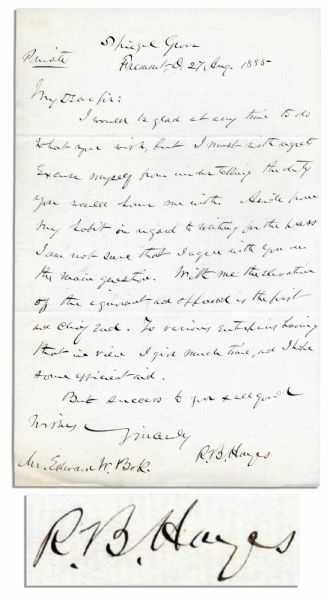 Spiegel Grove
Private
Fremont, O. 27, Aug. 1885
My Dear Sir:
I would be glad at any time to do
what you wish, but I must with regret
excuse myself from undertaking the duty
you would honor me with. Aside from
my habit in regard to writing for the press
I am not sure that I agree with you on
the main question. With me the elevation
of the ignorant and offered is the first
and chief end. To various enterprises having
that in view I give much time, and I hope
some efficient aid.
But success to you and good
wishes
Sincerely
R. B. Hayes
Mr. Edward W. Bok.
R. B. Hayes